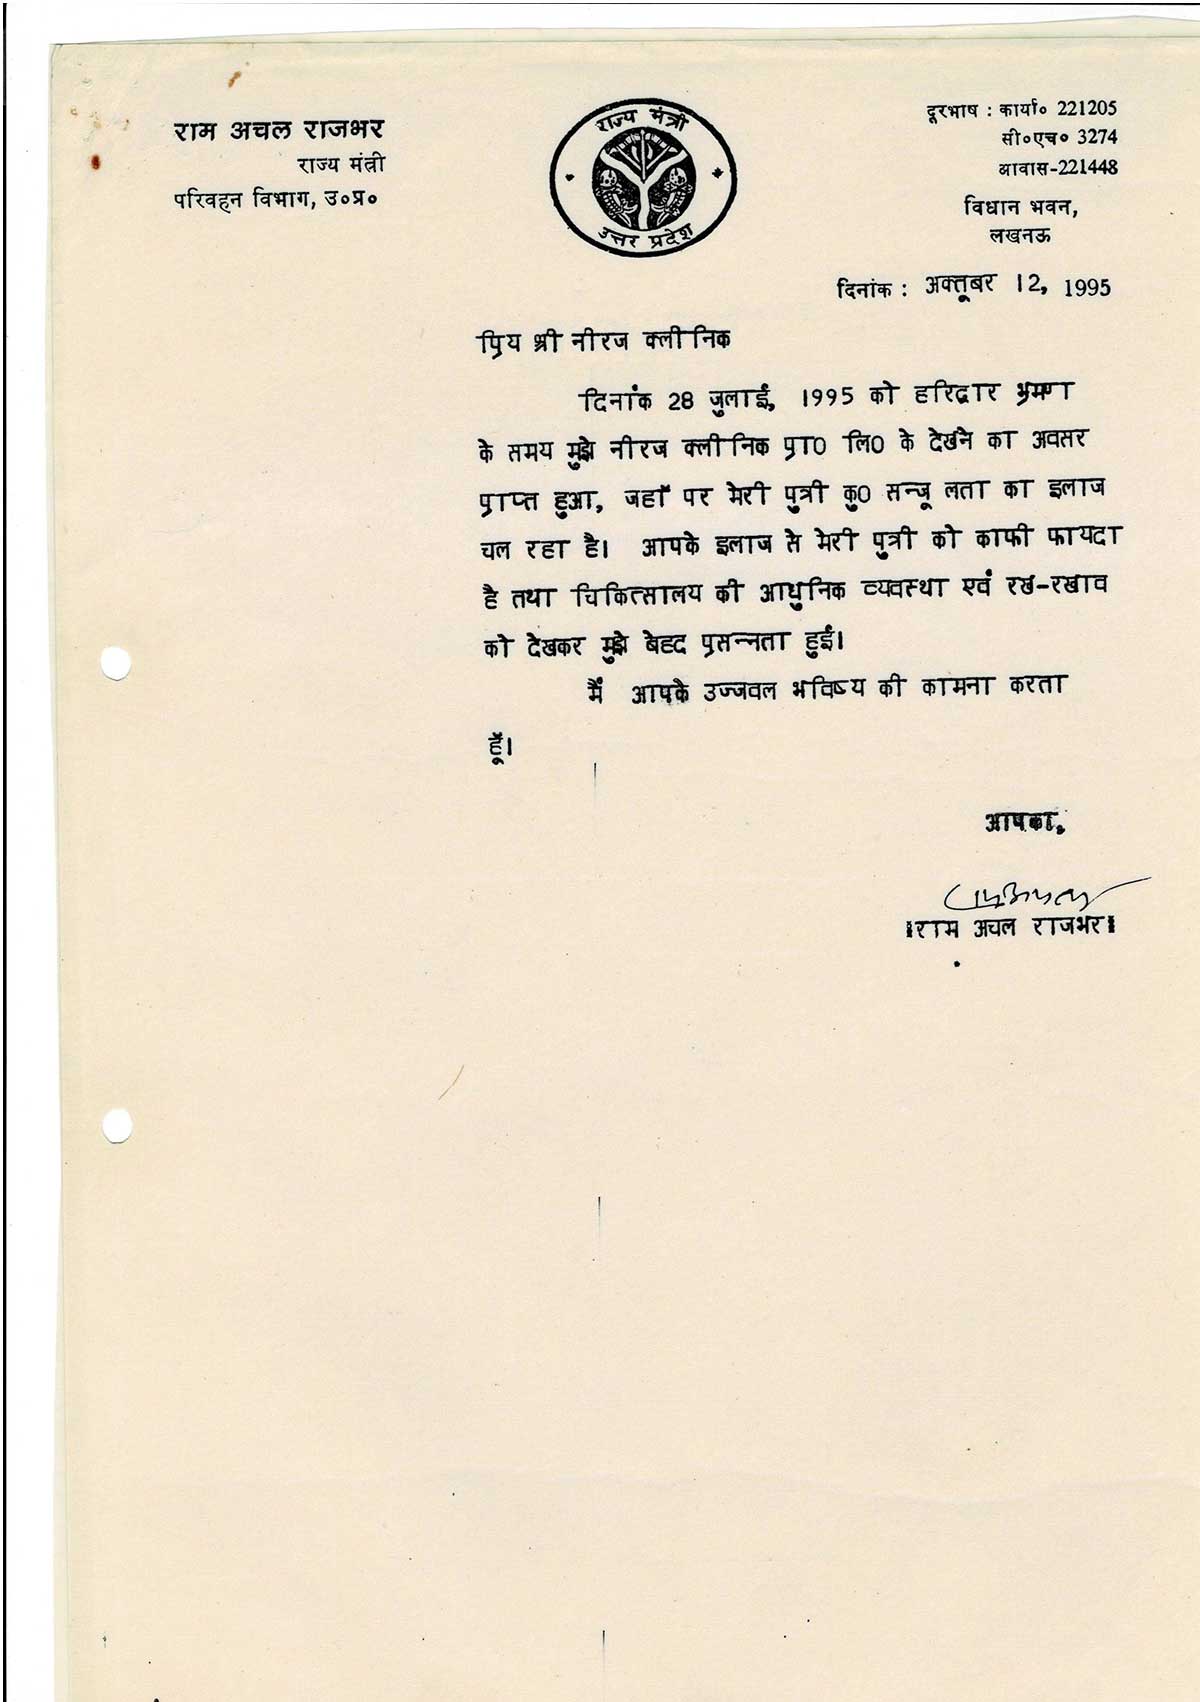 राम अचल राजभर
राज्य मंत्री
परिवहन विभाग, उ०प्र०
राज्य मंत्री
उत्तर प्रदेश
दूरभाष : कार्या० 221205
सी०एच० 3274
आवास-221448
विधान भवन,
लखनऊ
दिनांक : अक्तूबर 12, 1995
प्रिय श्री नीरज क्लीनिक
दिनांक 28 जुलाई, 1995 को हरिद्वार भ्रमण
के समय मुझे नीरज क्लीनिक प्रा0 लि0 के देखने का अवसर
प्राप्त हुआ, जहाँ पर मेरी पुत्री कु0 सन्जू लता का इलाज
चल रहा है। आपके इलाज से मेरी पुत्री को काफी फायदा
है तथा चिकित्सालय की आधुनिक व्यवस्था एवं रख-रखाव
को देखकर मुझे बेहद प्रसन्नता हुई।
मैं आपके उज्जवल भविष्य की कामना करता
हूँ।
आपका,
।राम अचल राजभर।